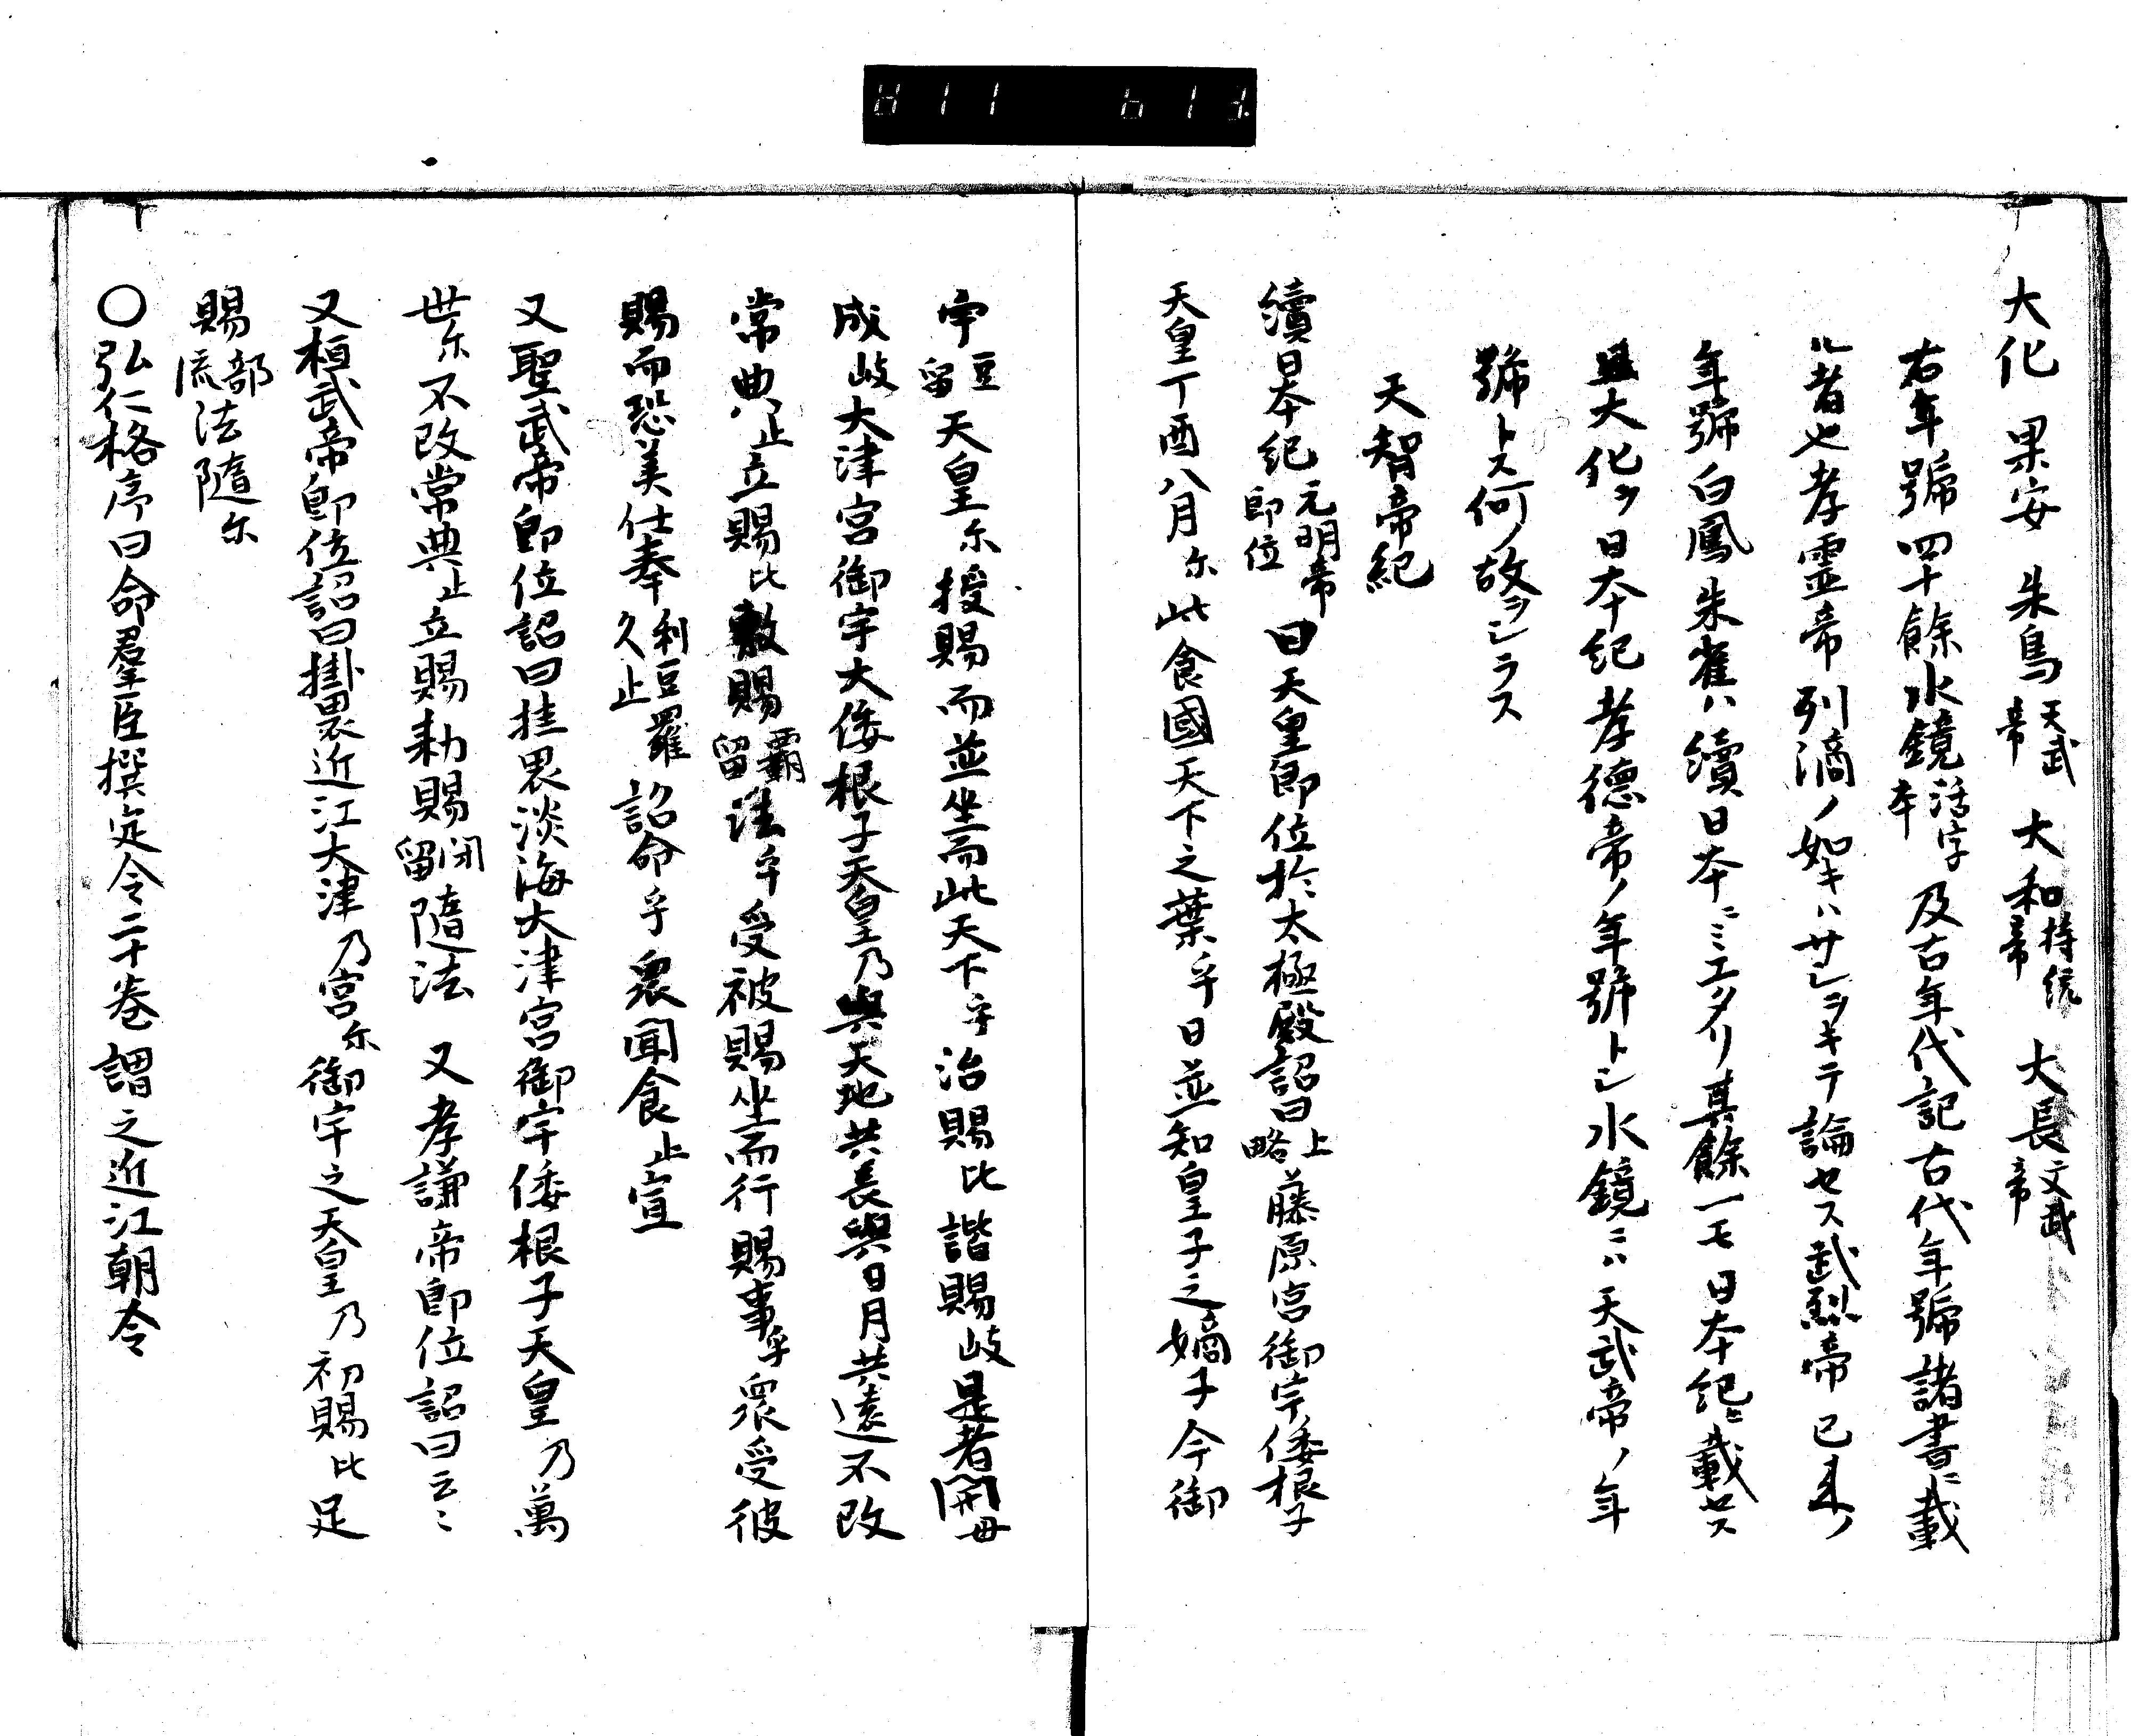 大化 果安 朱鳥天武帝 大和持統帝 大長文武帝
右年號四十餘水鏡活字本及古年代記古代年號諸書ニ載
ル者也孝霊帝列滴ノ如キハサシヲキテ論セス武烈帝已来ノ
年號白鳳朱雀ハ續日本ニミエタリ其餘一モ日本紀ニ載セス
且大化ヲ日本紀孝德帝ノ年號トシ水鏡ニハ天武帝ノ年
號トス何ノ故ヲシラス
天智帝紀
續日本紀元明帝即位曰天皇即位於太極殿詔曰上略藤原宮御宇倭根子
天皇丁酉八月尓此食國天下之葉乎日並知皇子之嫡子今御
宇豆留天皇尓授賜而並坐而此天下乎治賜比諧賜岐是者関母
成岐大津宮御宇大倭根子天皇乃與天地共長與日月共遠不改
常典止立賜比敷賜覇留法乎受被賜坐而行賜事乎衆受彼
賜而恐美仕奉利豆羅久止詔命乎衆聞食止宣
又聖武帝即位詔曰挂畏淡海大津宮御宇倭根子天皇乃萬
世尓不改常典止立賜勑賜閇留隨法 又孝謙帝即位詔曰云〻
又桓武帝即位詔曰掛畏近江大津乃宮尓御宇之天皇乃初賜比足
賜部流法隨尓
〇弘仁格序曰命羣臣撰定令二十巻 謂之近江朝令